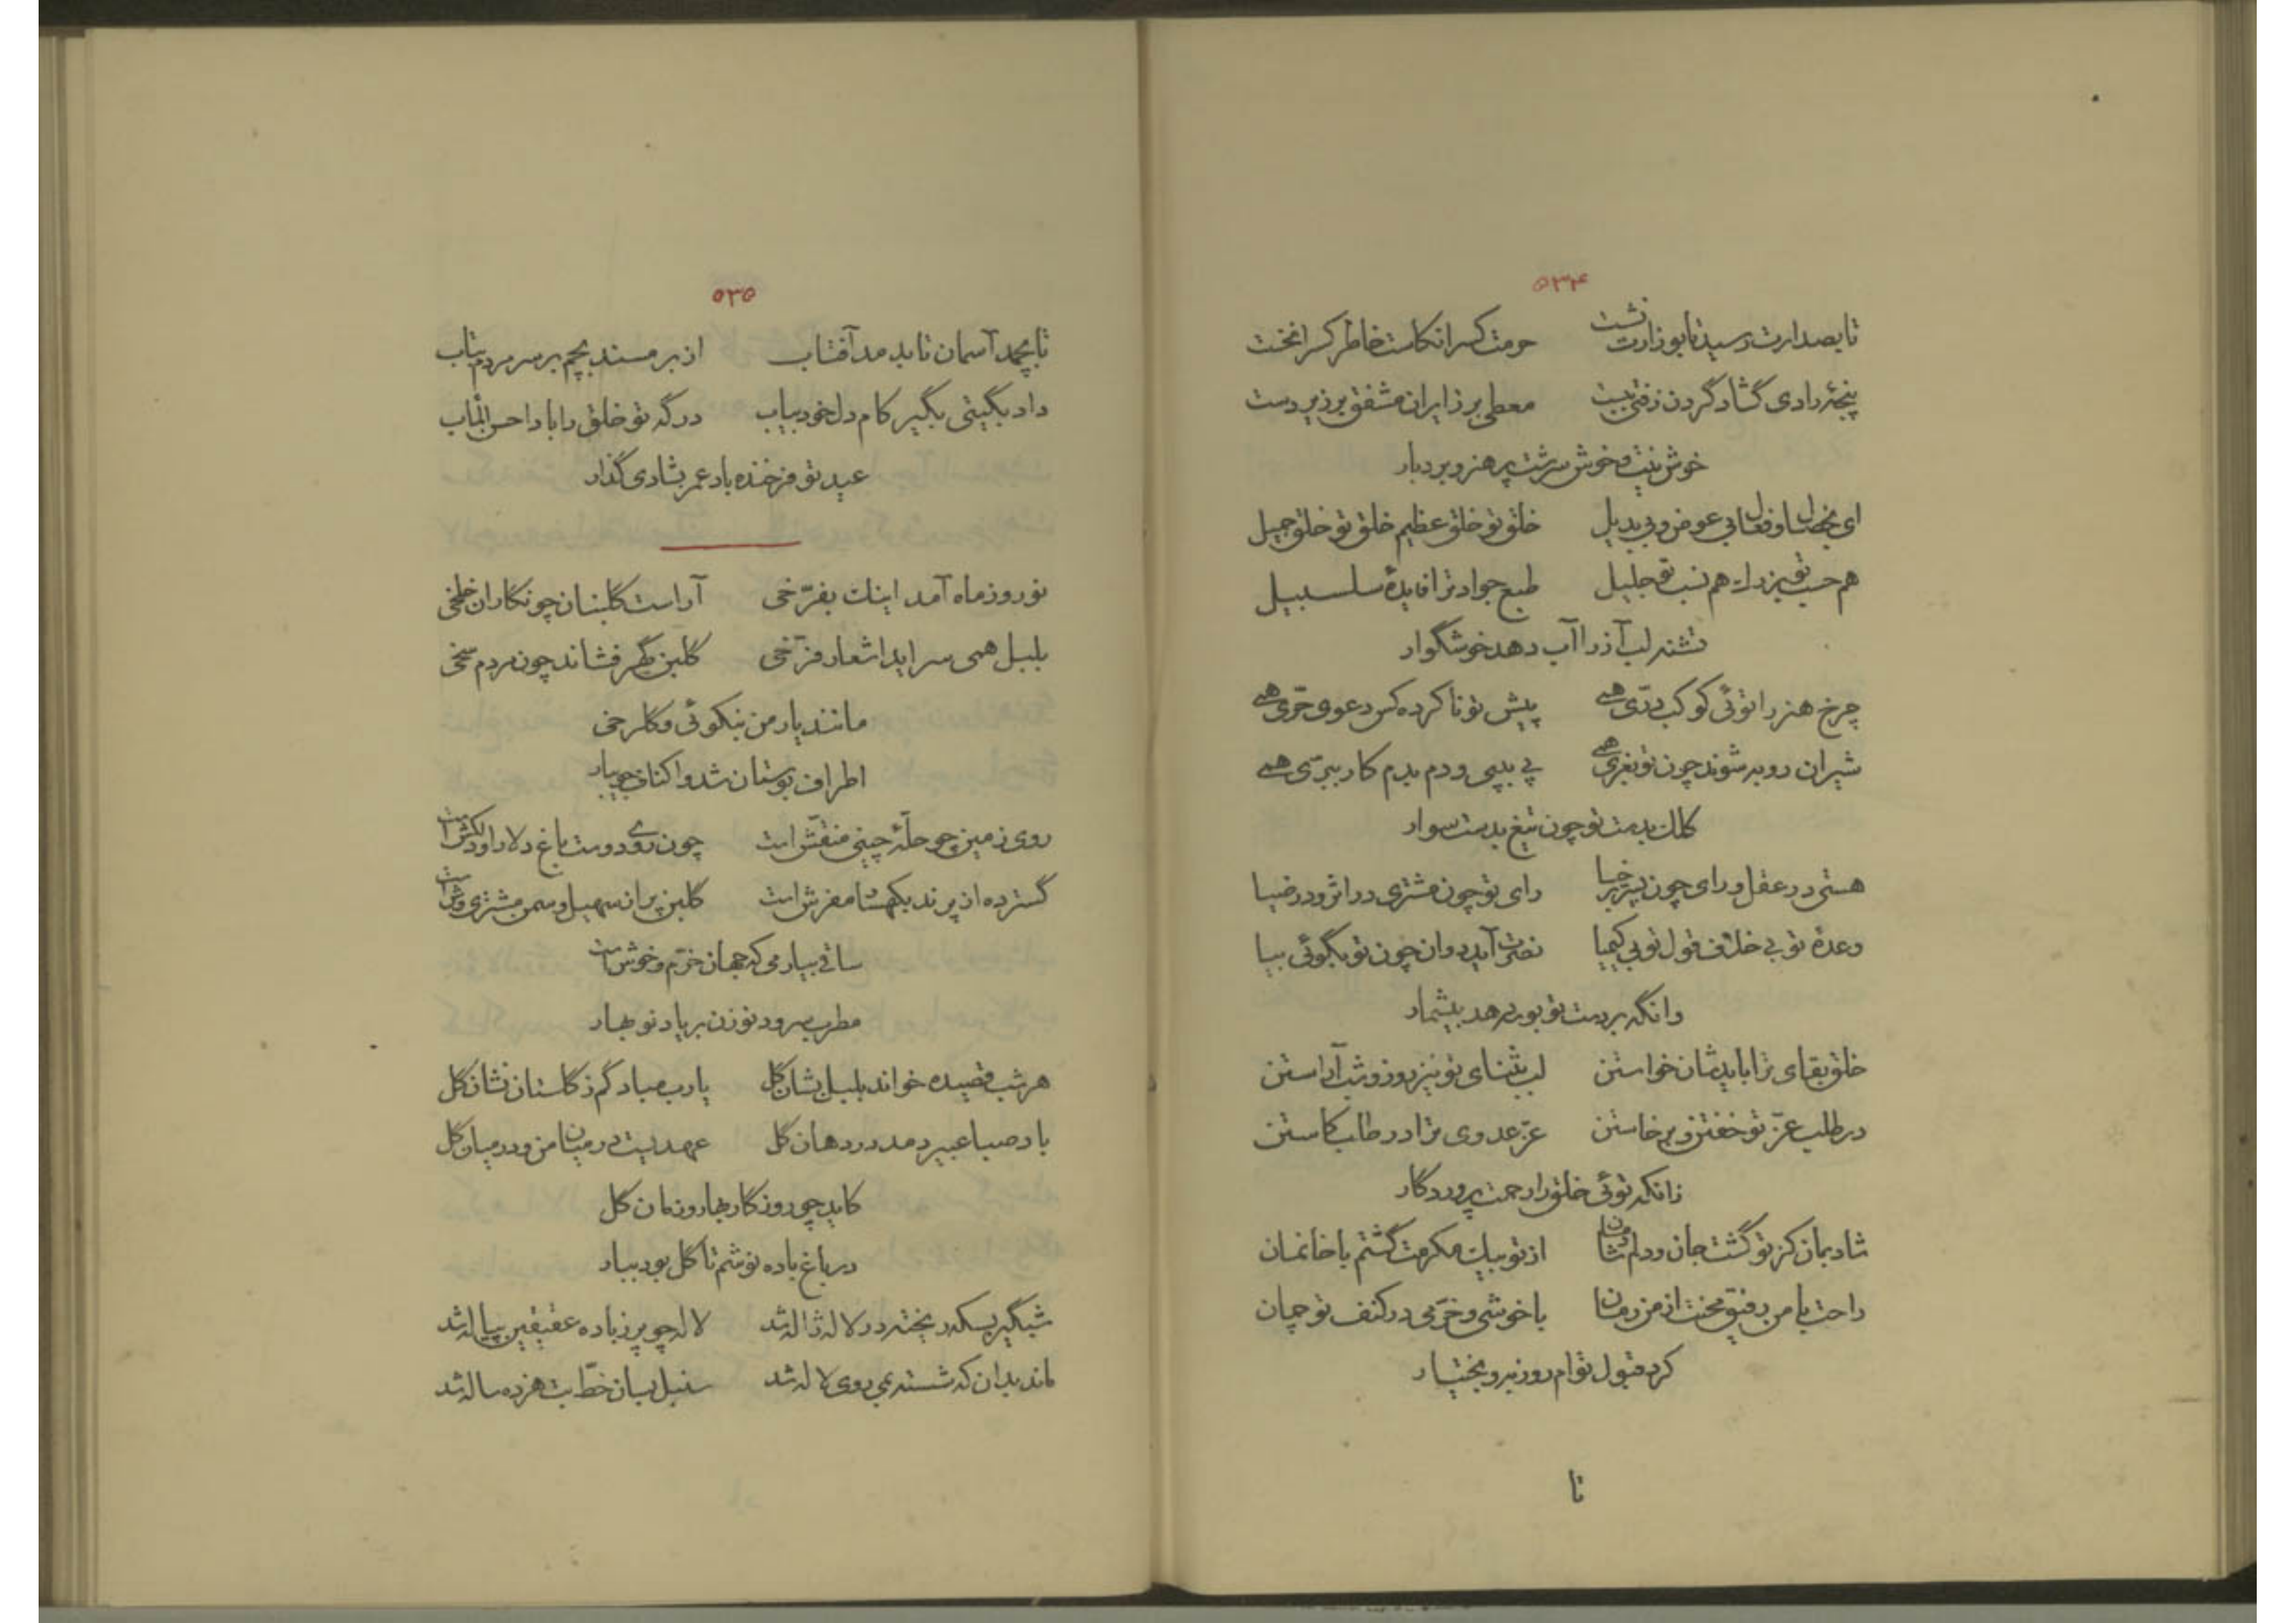 ۵۳۴
تا بصدارت رسید تا بوزارت نشست حرمت کس را نکاست خاطر کس را نخست
پنجهٔ رادی گشاد گردن زفتی ببست معطی بر زایران مشفق بر زیردست
خوش نیت و خوش سرشت پر هنر و بردبار
ای بخصال و فعال بی عوض و بی بدیل خلق تو خلق عظیم خلق تو خلق جمیل
هم حسب تو هم نسب تو جلیل طبع جواد ترا فایدهٔ سلسبیل
تشنه لب آز را آب دهد خوشگوار
چرخ هنر را توئی کوکب درّی همی پیش تو ناکرده کس دعوی حرّی همی
شیران روبه شوند چون تو بغرّی همی پی بپی و دم بدم کار ببرّی همی
کلک بدست تو چون تیغ بدست سوار
هستی در عقل و رای چون پدر رای تو چون مشتری در اثر و در ضیا
وعدهٔ تو بی خلاف قول تو بی کیمیا نصرت آید دوان چون تو بگوئی بیا
وانگه بر دست تو بوسه دهد بیشمار
خلق بقای ترا باید شان خواستن لب بثنای تو نیز روز و شب آراستن
در طلب عزّ تو خفتن و برخاستن عزّ عدوی ترا در طلب کاستن
زانکه توئی خلق را رحمت پروردگار
شاد بمان کز تو گشت جان و دلم شادمان از تو بیک مکرمت گشتم با خانمان
راحت با من رفیق محنت از من رمان با خوشی و خرّمی در کنف تو چمان
کرد قبول توام روزبه و بختیار
تا
۵۳۵
تا بچمد آسمان تا بدمد آفتاب از بر مسند بچم بر سر مردم بتاب
داد بگیتی بگیر کام دل خود بیاب درگه تو خلق را بادا حسن المآب
عید تو فرخنده باد عمر بشادی گذار
نوروز ماه آمد اینک بفرّخی آراست گلبنان چو نگاران خلّخی
بلبل همی سراید اشعار فرّخی گلبن گهر فشاند چون مردم سخی
مانند یار من بنکوئی و گلرخی
اطراف بوستان شد و اکناف جویبار
روی زمین چو حلّهٔ چینی منقّش است چون روی دوست باغ دلارا و دلکش است
گسترده از پرند بکهسار مفرش است گلبن پر از سهیل و سمن مشتری وش است
ساقی بیار می که جهان خرّم و خوش است
مطرب سرود نو زن بر یاد نوبهار
هر شب قصیده خواند بلبل بشان گل یارب مباد گم ز گلستان نشان گل
باد صبا عبیر دمد در دهان گل عهدیست در میان من و در میان گل
کاید چو روزگار بهار و زمان گل
در باغ باده نوشم تا گل بود ببار
شبگیر بسکه ریخته در لاله ژاله شد لاله چو پر ز باده عقیقین پیاله شد
ماند بدان که شسته بمی روی لاله شد سنبل بسان خطّ بت هژده ساله شد